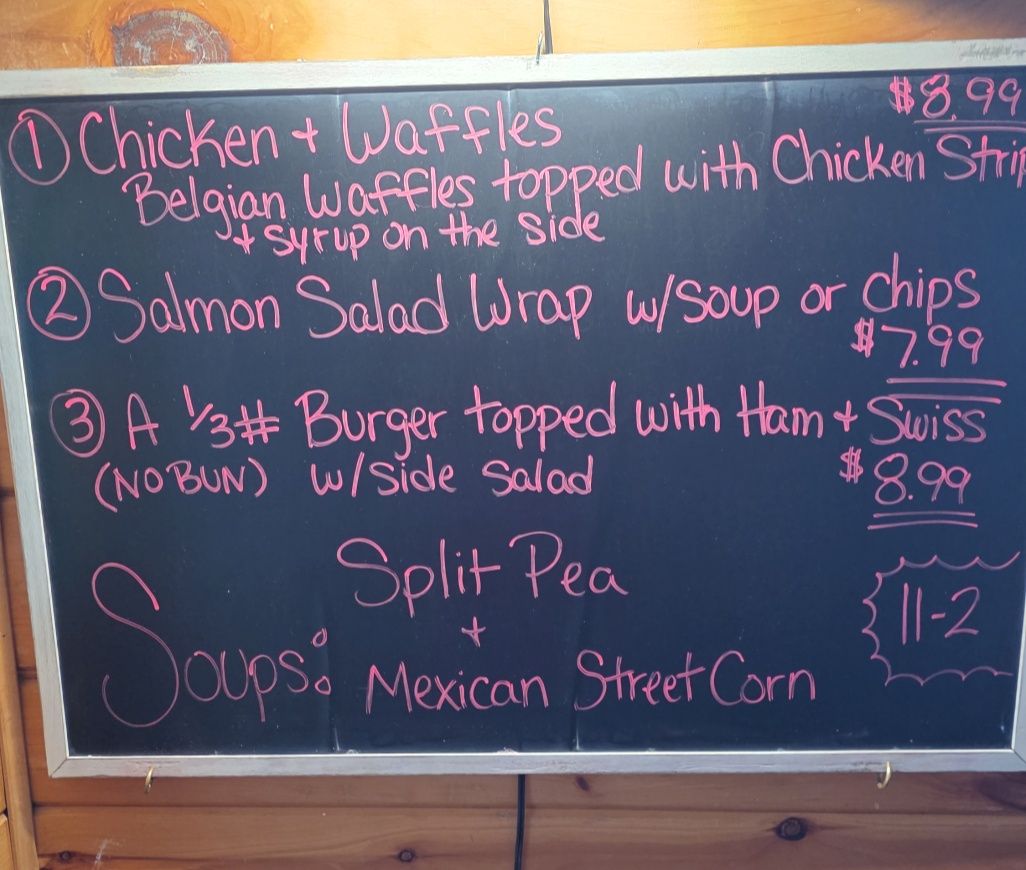 $8.99
① Chicken + Waffles
Belgian Waffles topped with Chicken Strip
+ syrup on the side
② Salmon Salad Wrap w/soup or chips
$7.99
③ A 1/3# Burger topped with Ham + Swiss
(NO BUN) w/side salad
$8.99
Split Pea
+
Soups: Mexican Street Corn
11-2